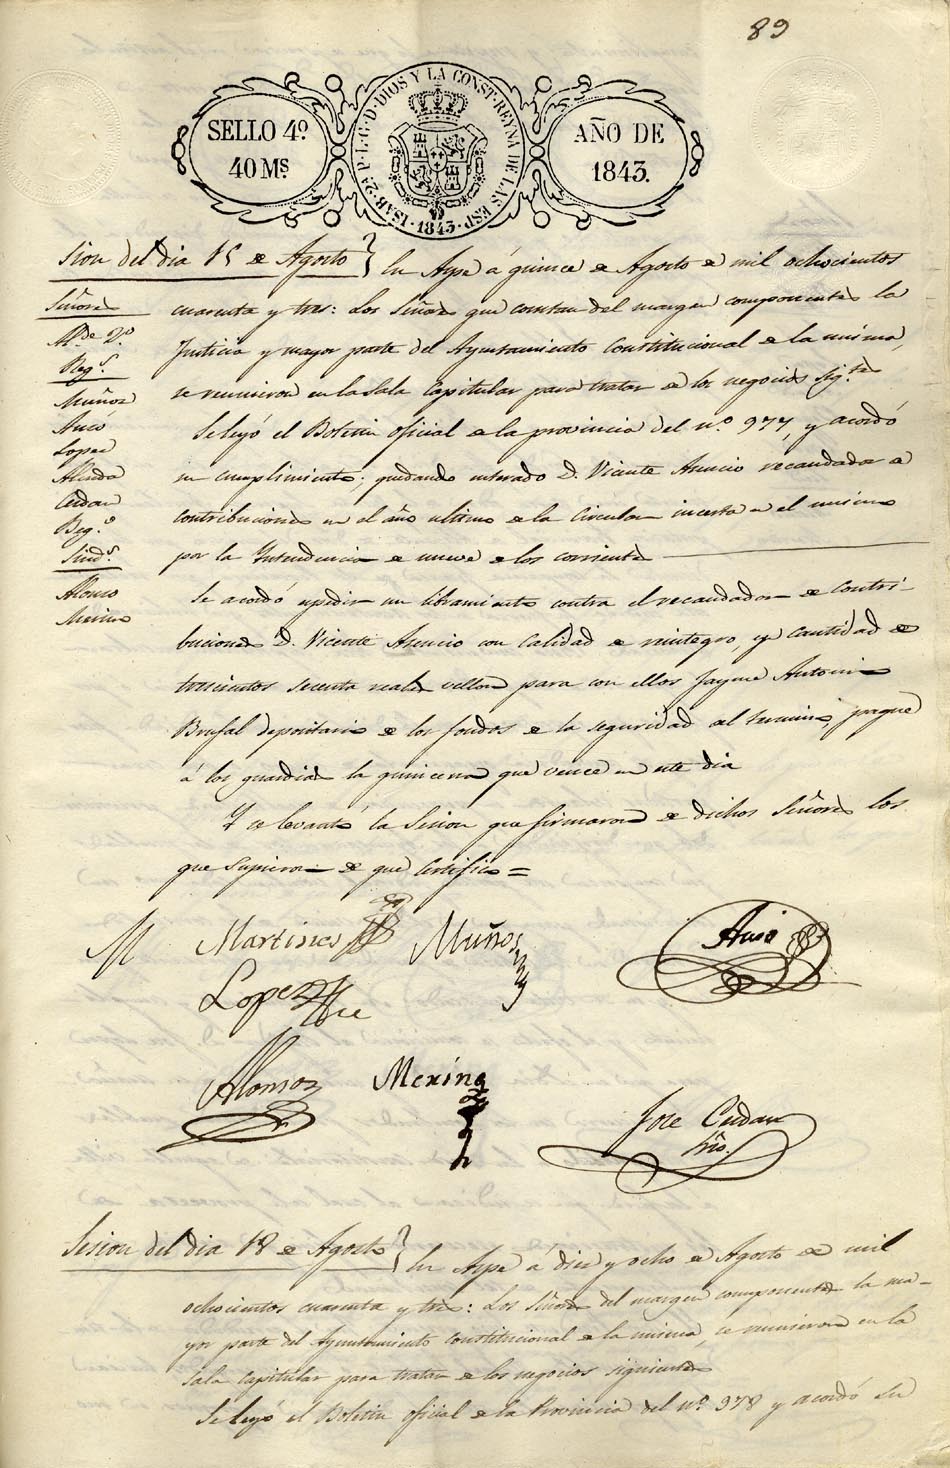 89
SELLO 4º
40 Ms
ISAB. 2ª P. L. G. D. DIOS Y LA CONST. REYNA DE LAS ESP. 1843
AÑO DE
1843.
sion del dia 15 de Agosto
En Aspe á quince de Agosto de mil ochocientos
cuarenta y tres: Los Señores que constan del margen componentes la
Justicia y mayor parte del Ayuntamiento Constitucional de la misma,
se reunieron en la Sala Capitular para tratar de los negocios sigtes
Se leyó el Boletin oficial de la provincia del nº 977, y acordó
su cumplimiento; quedando enterado D. Vicente Asencio recaudador de
contribuciones en el año ultimo de la Circular inserta en el mismo
por la Intendencia de nueve de los corrientes
Se acordó espedir un libramiento contra el recaudador de Contri-
buciones D. Vicente Asencio con calidad de reintegro, y cantidad de
trescientos sesenta reales vellon para con ellos Jayme Antonio
Brufal depositario de los fondos de la seguridad del termino, pague
á los guardias la quincena que vence en este dia
Y se levantó la Sesion que firmaron de dichos Señores los
que supieron de que Certifico =
Señores
Alde 2º
Regs
Muñoz
Aucó
Lopez
Alenda
Cerdan
Sinds
Alonso
Merino
M
Martines
Muños
Lopez
Alonso
Merino
Jose Cerdan
Srio.
Sesion del dia 18 de Agosto
En Aspe á diez y ocho de Agosto de mil
ochocientos cuarenta y tres: Los Señores del margen componentes la ma-
yor parte del Ayuntamiento Constitucional de la misma, se reunieron en la
Sala Capitular para tratar de los negocios siguientes
Se leyó el Boletin oficial de la Provincia del nº 978 y acordó su